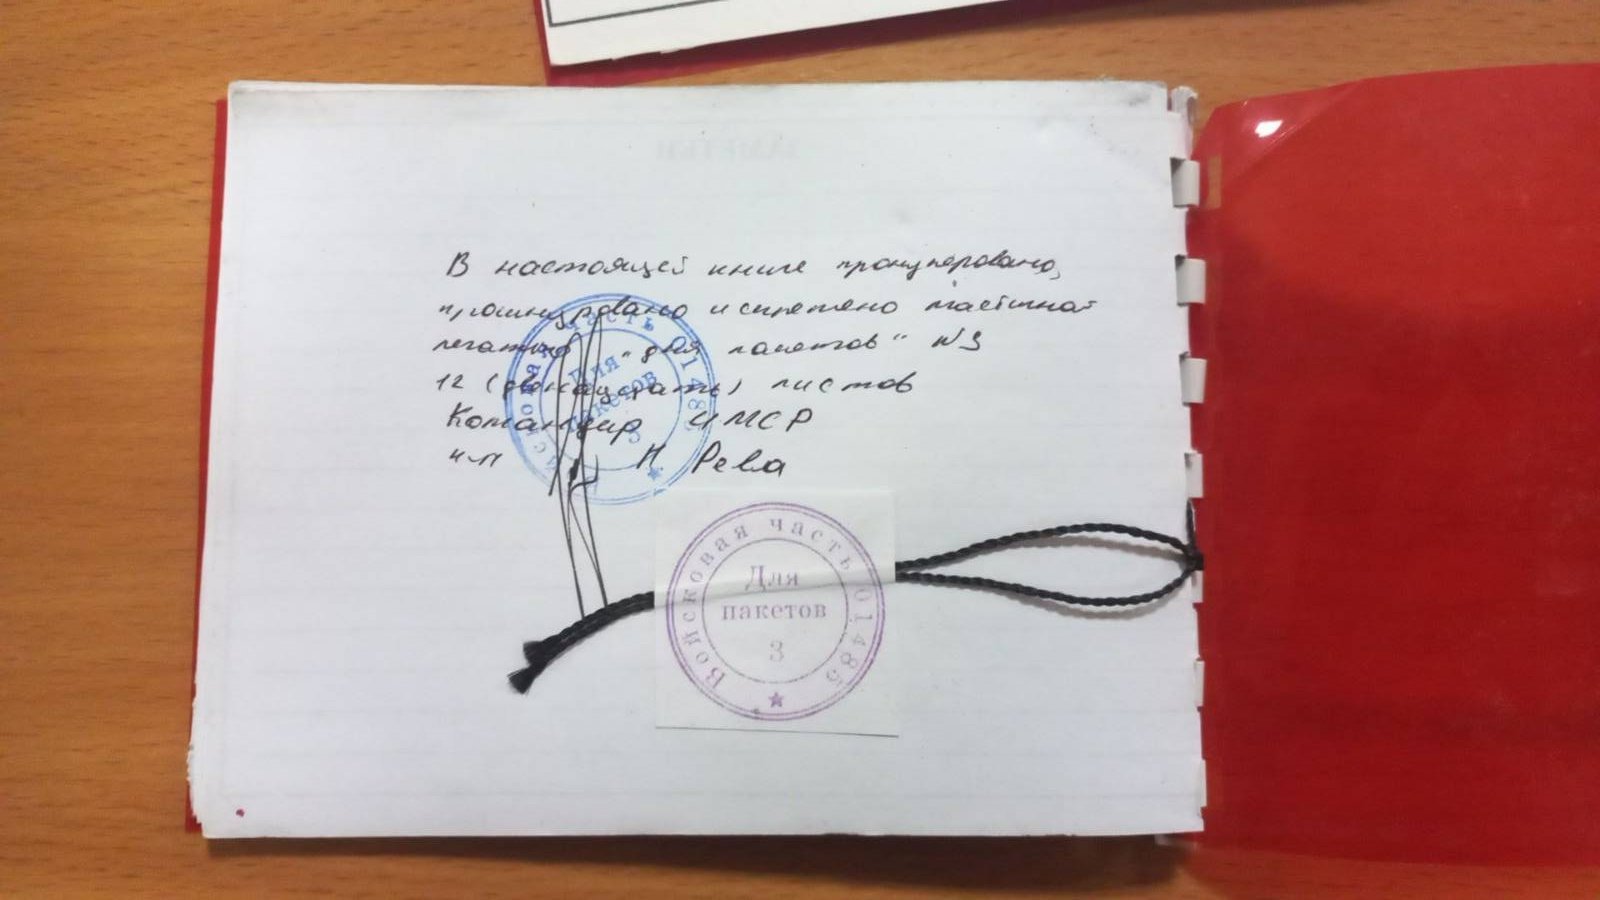 В настоящей книге пронумеровано,
прошнуровано и скреплено мастичной
печатью "для пакетов" №3
12 (двенадцать) листов
Командир ИМСР
к-н Н Рева
Войсковая часть 01485
Для
пакетов
3
Войсковая часть 01485
Для
пакетов
3